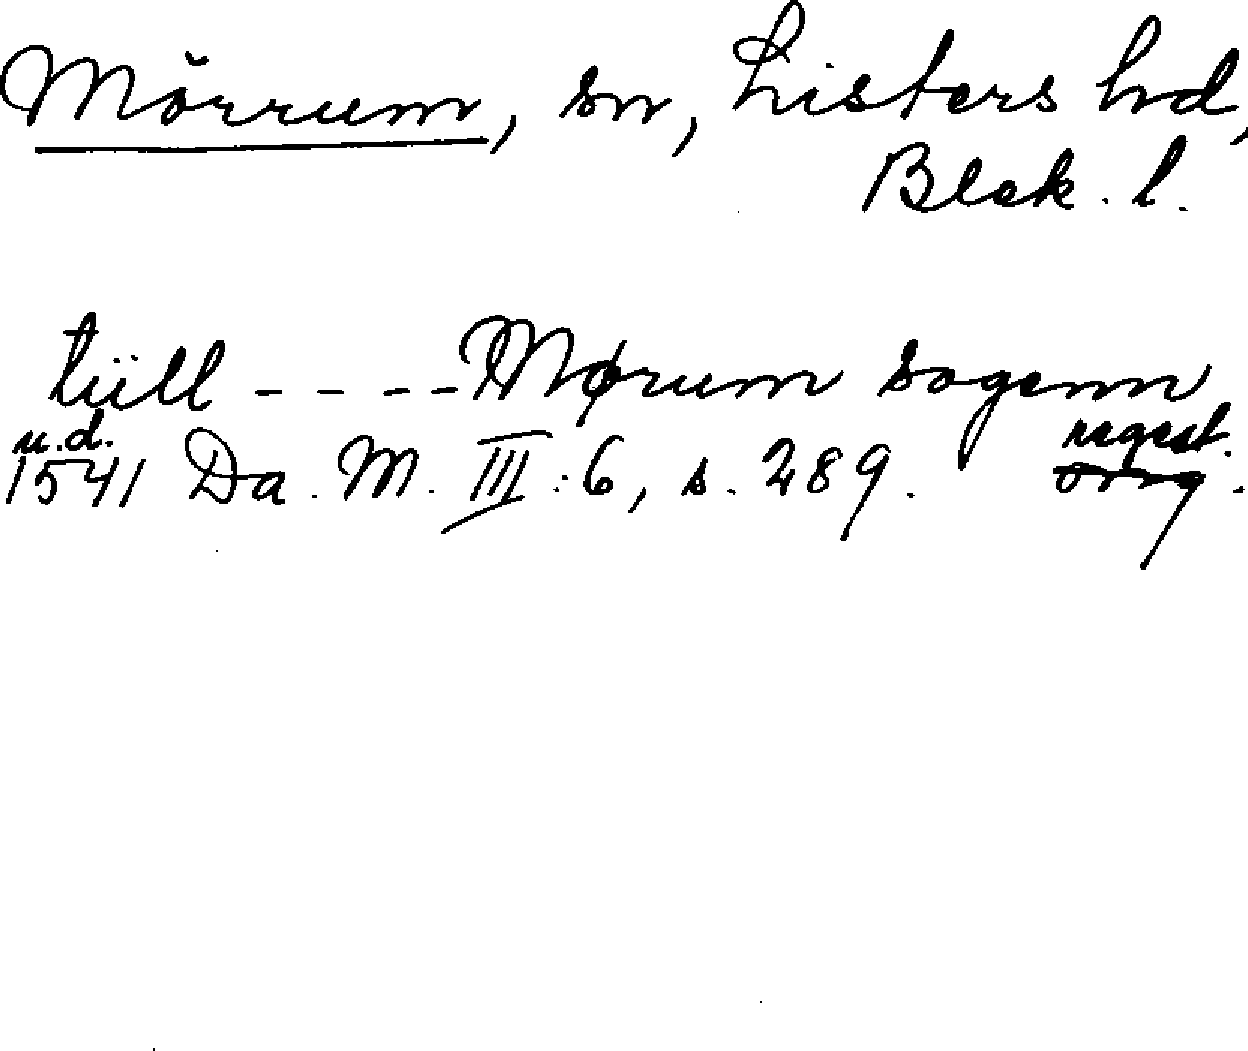 Mörrum, sn, Listers hd,
Blek. l.
tiill - - - - Mørum sogenn
u.d. regest.
1541 Da. M. III:6, s. 289. orig.